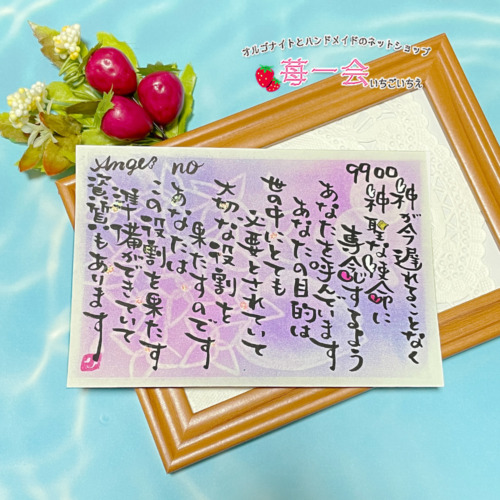 オルゴナイトとハンドメイドのネットショップ
苺一会
いちごいちえ
Anges no 9900
神が今遅れることなく
神聖な使命に
専念するよう
あなたを呼んでいます
あなたの目的は
世の中にとても
必要とされていて
大切な役割を
果たすのです
あなたは
この役割を果たす
準備ができていて
資質もあります